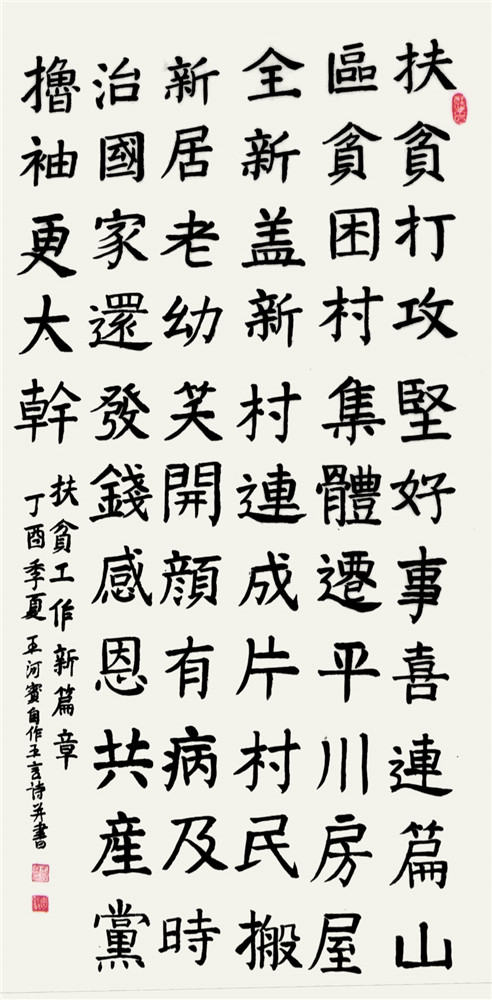 扶貧打攻堅好事喜連篇山
區貧困村集體遷平川房屋
全新盖新村連成片村民搬
新居老幼笑開顔有病及時
治國家還發錢感恩共産黨
擼袖更大幹
扶貧工作新篇章
丁酉季夏 王河賓自作五言詩并書